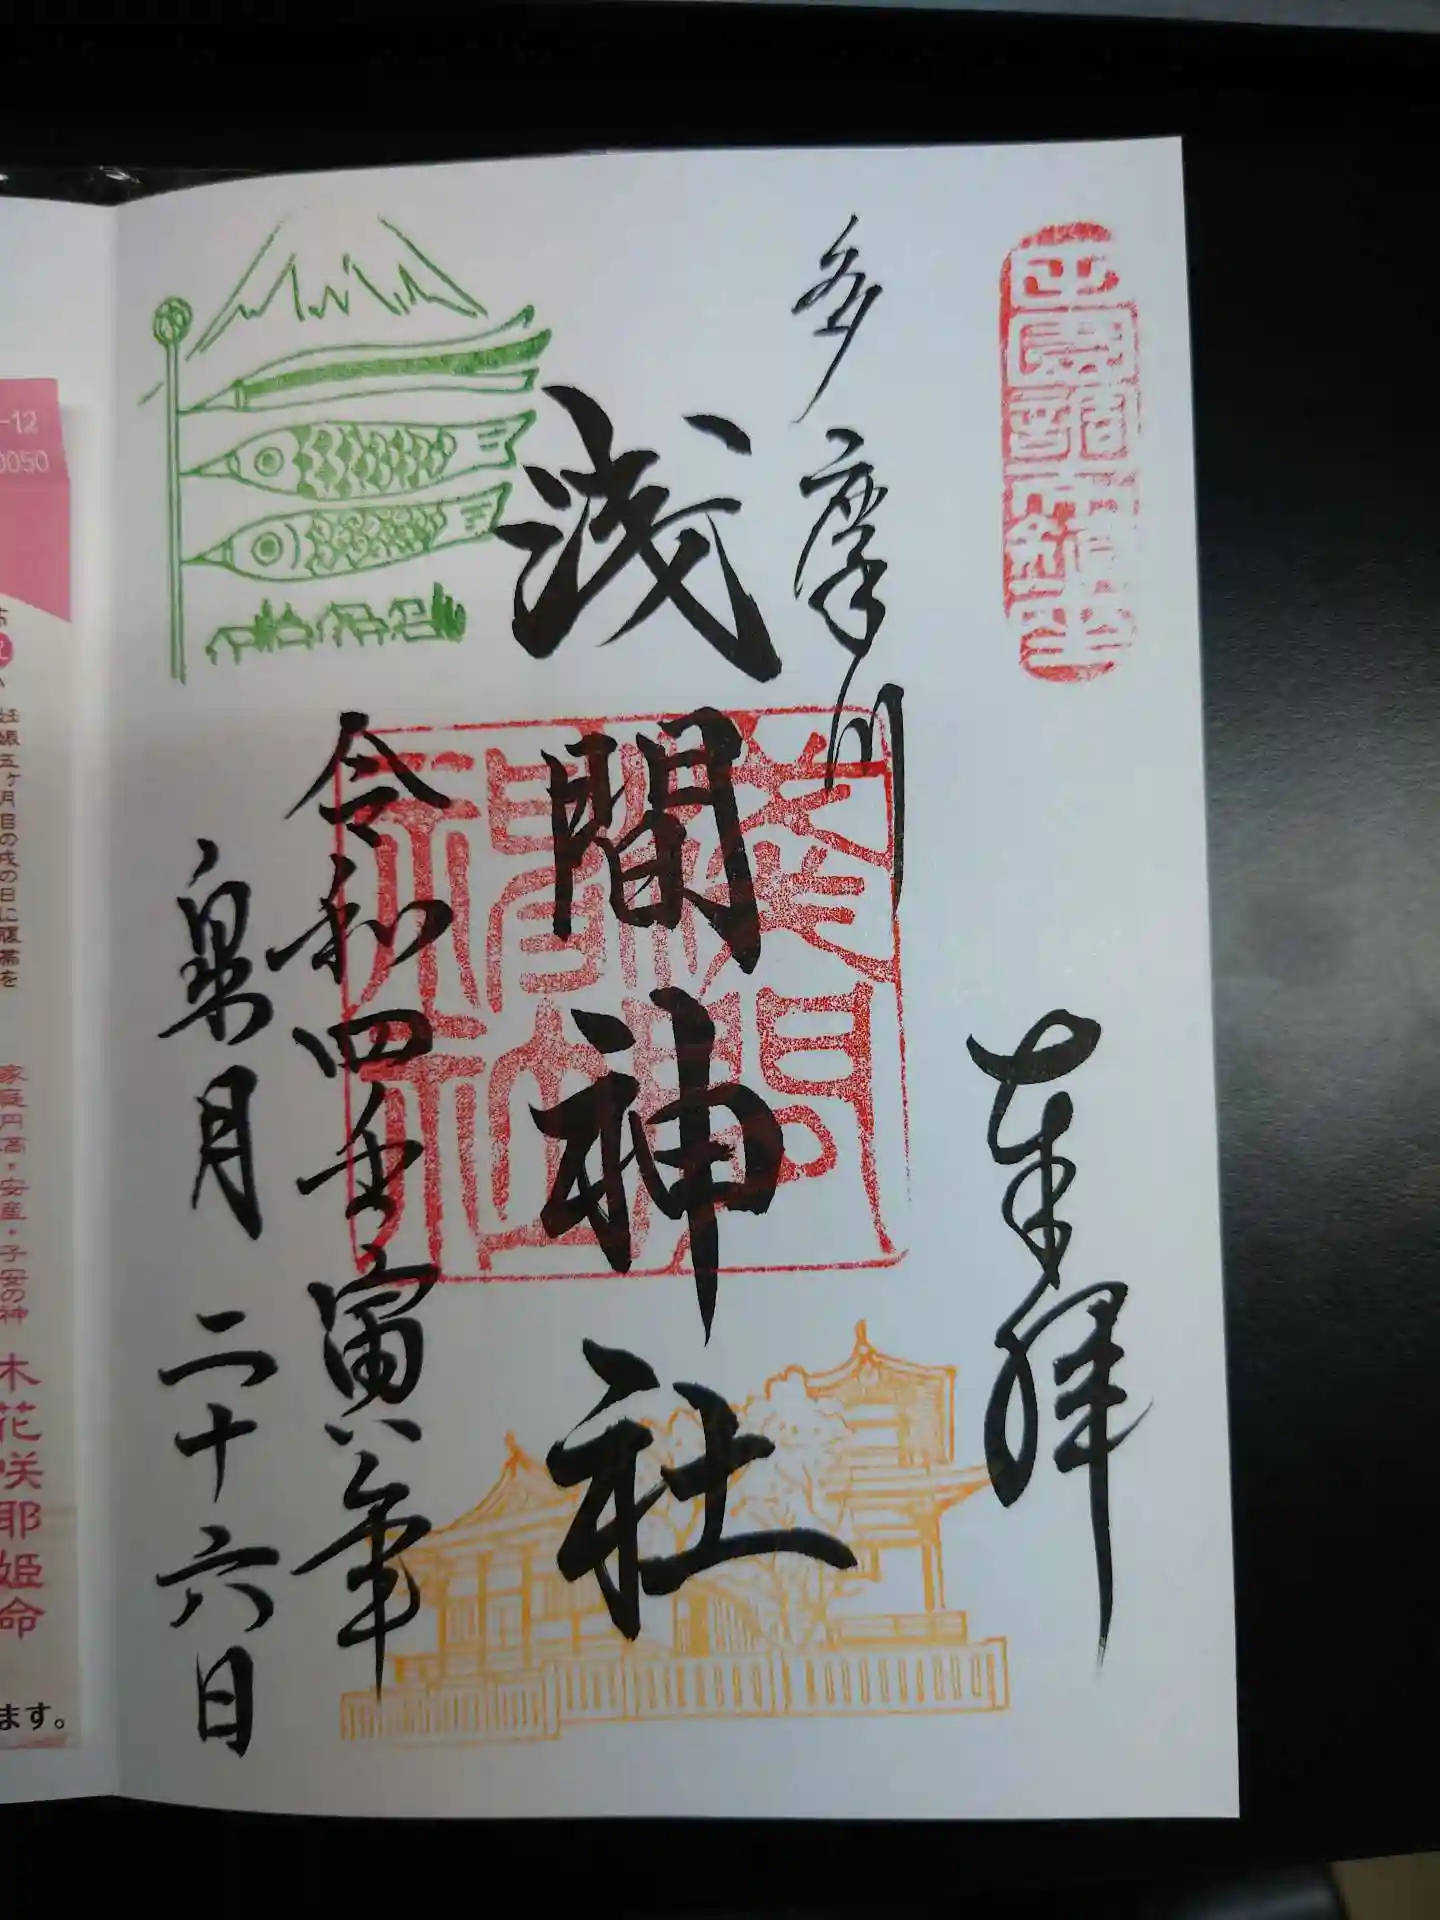 奉拝
多摩川
浅間神社
令和四壬寅年
皐月二十六日
-12
0050
妊娠五ヶ月目の戌の日に腹帯を
家庭円満・安産・子安の神
木花咲耶姫命
ます。